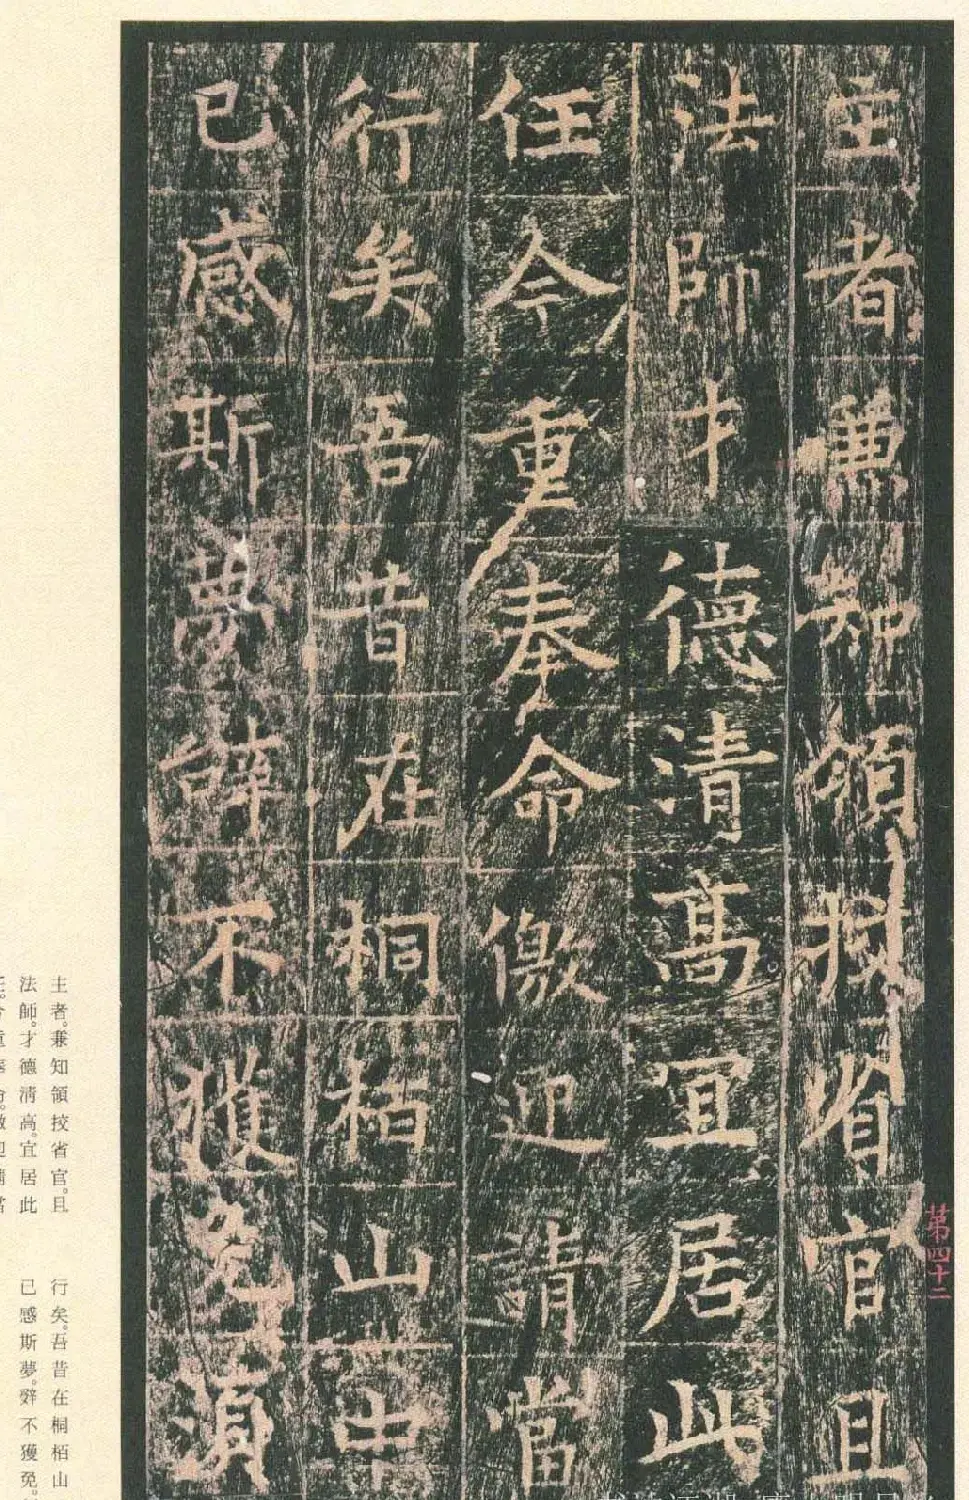 主者兼知領挍省官且
法師才德清高宜居此
任今重奉命儌迎請當
行矣吾昔在桐栢山中
已感斯夢辤不獲免須
第四十二
主者。兼知領挍省官。且
法師。才德清高。宜居此
行矣。吾昔在桐栢山
已感斯夢。辤不獲免。